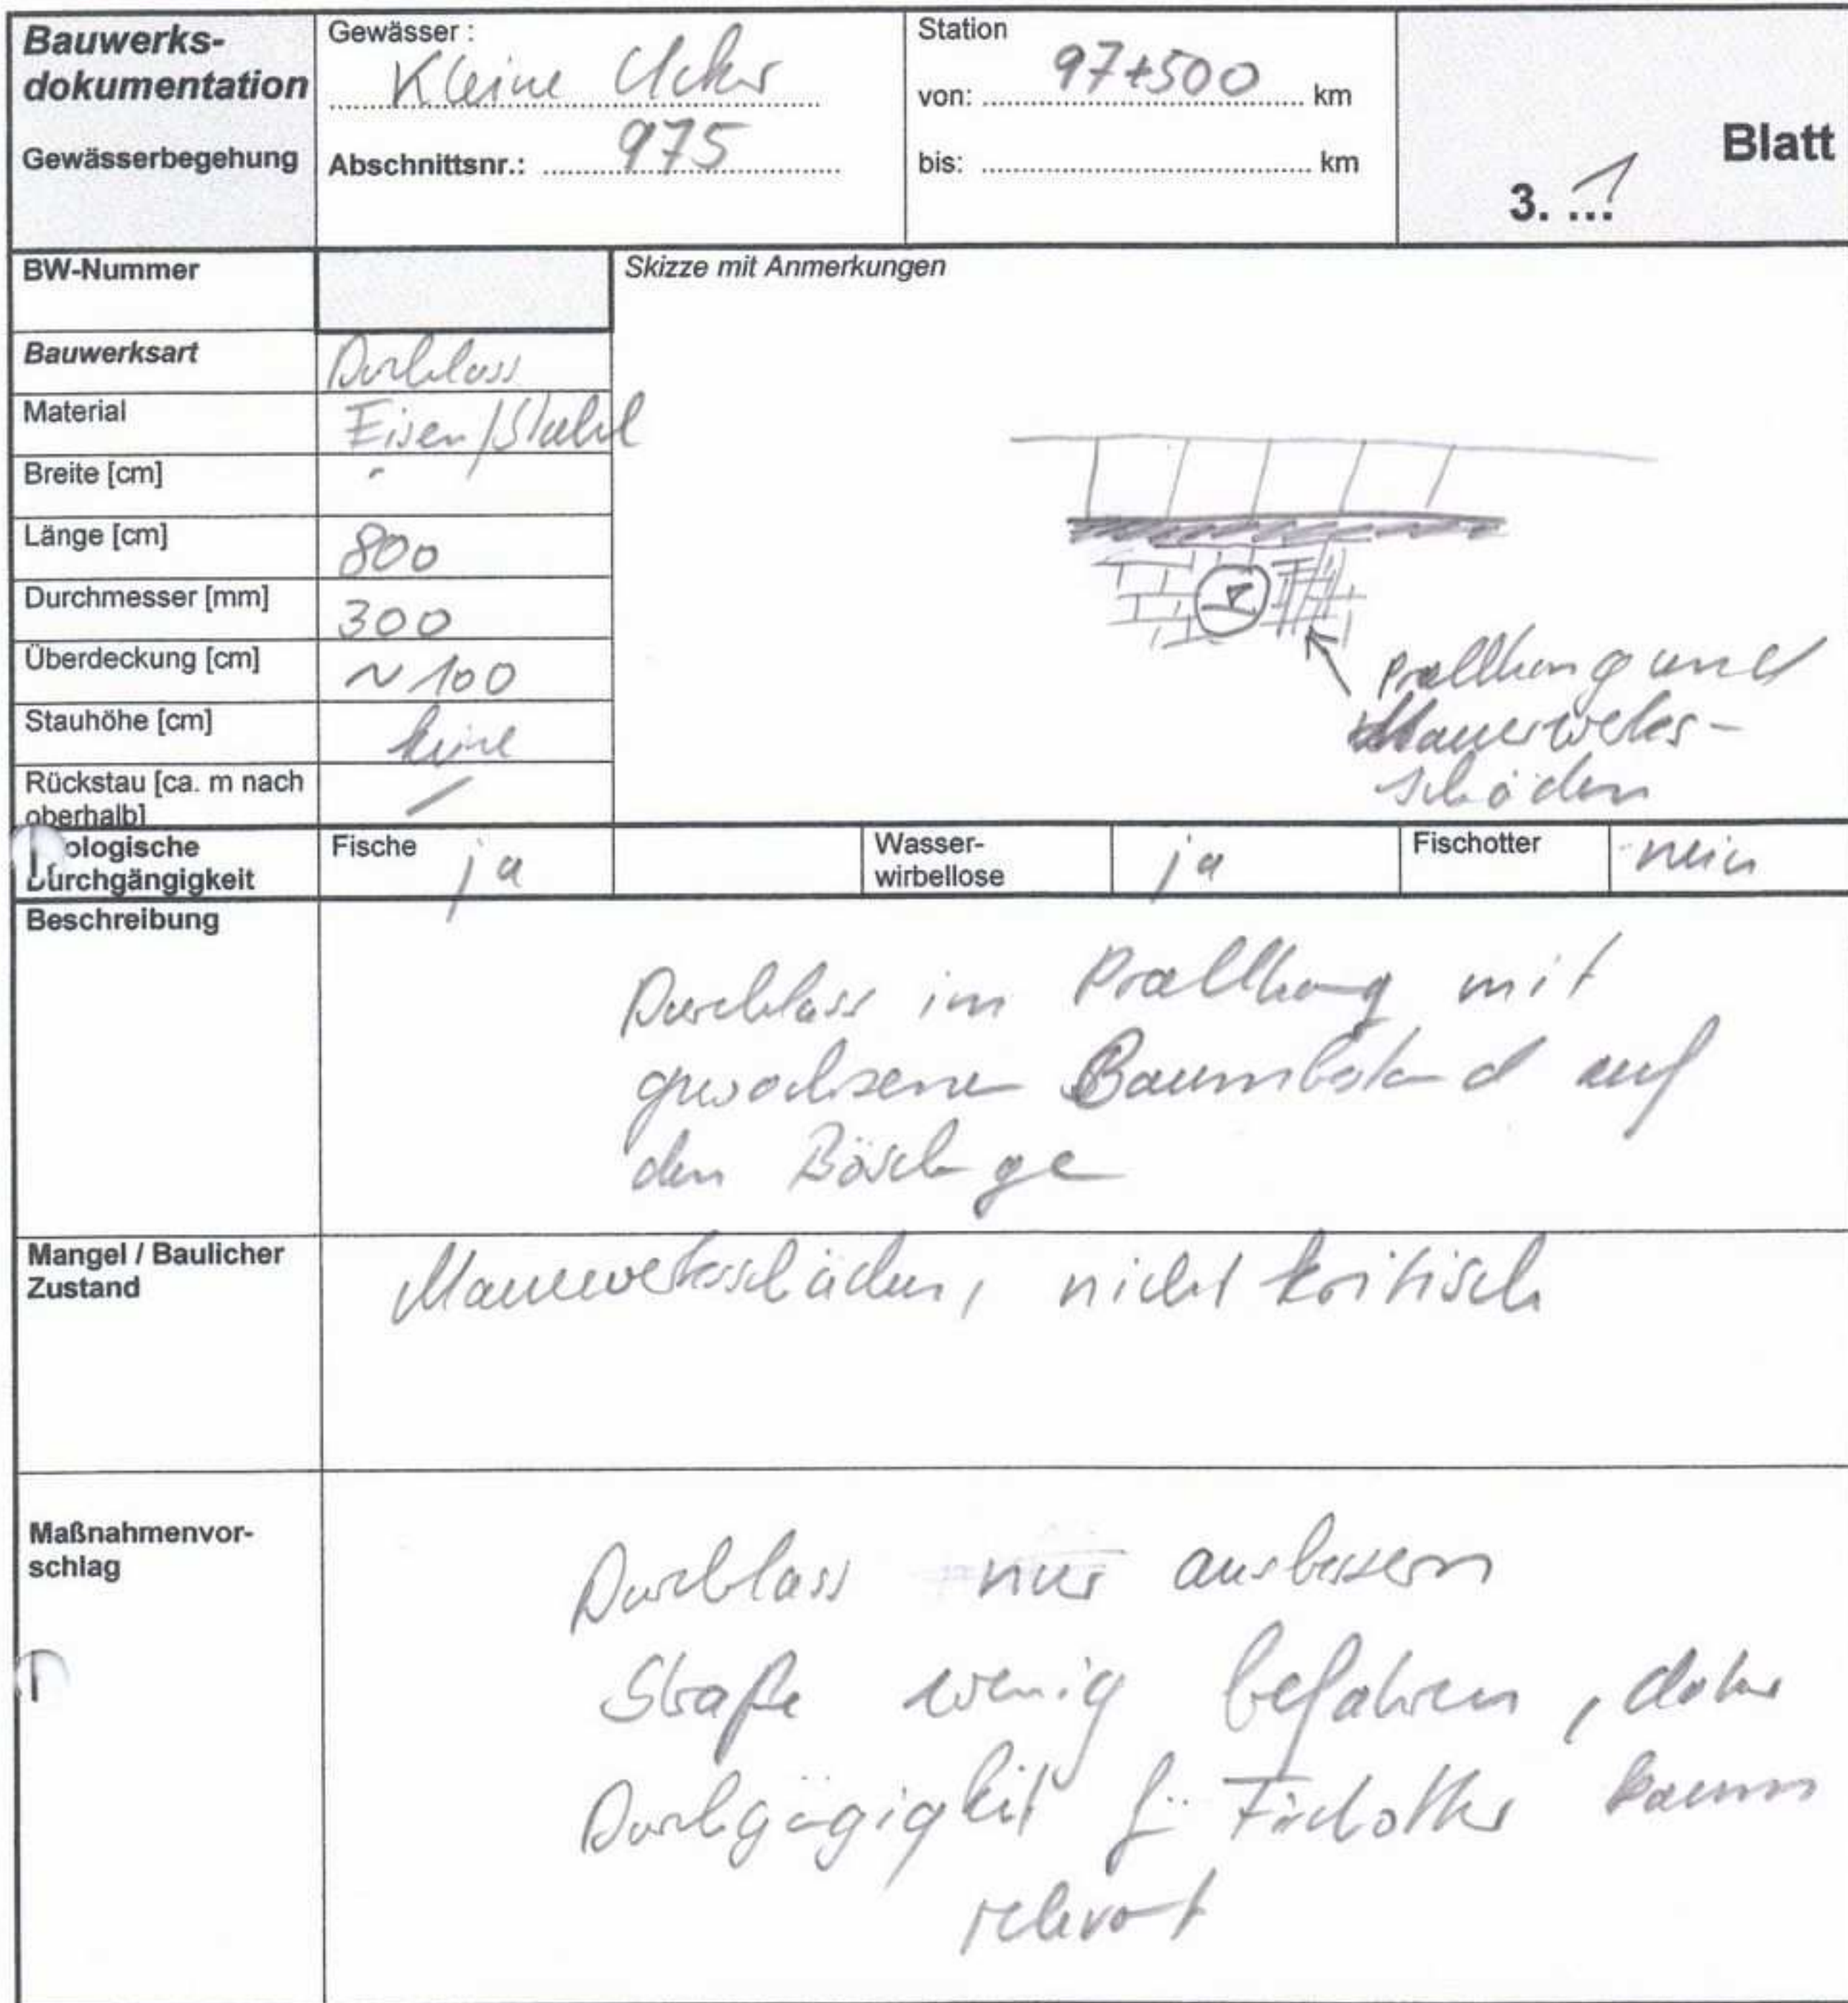 Bauwerks-
dokumentation
Gewässerbegehung
Gewässer :
Kleine Ucker
Abschnittsnr.: 975
Station
von: 97+500 km
bis: km
Blatt
3. 1
BW-Nummer
Skizze mit Anmerkungen
Bauwerksart Durchlass
Material Eisen/Stahl
Breite [cm] -
Länge [cm] 800
Durchmesser [mm] 300
Überdeckung [cm] ~ 100
Stauhöhe [cm] keine
Rückstau [ca. m nach
oberhalb] /
Prallhang und
Mauerwerks-
schäden
ologische
Durchgängigkeit
Fische ja
Wasser-
wirbellose ja
Fischotter nein
Beschreibung
Durchlass im Prallhang mit
gewachsenen Baumbestand auf
den Böschungen
Mangel / Baulicher
Zustand
Mauerwerksschäden, nicht kritisch
Maßnahmenvor-
schlag
Durchlass nur ausbessern
Straße wenig befahren, daher
Durchgängigkeit f. Fischotter kaum
relevant